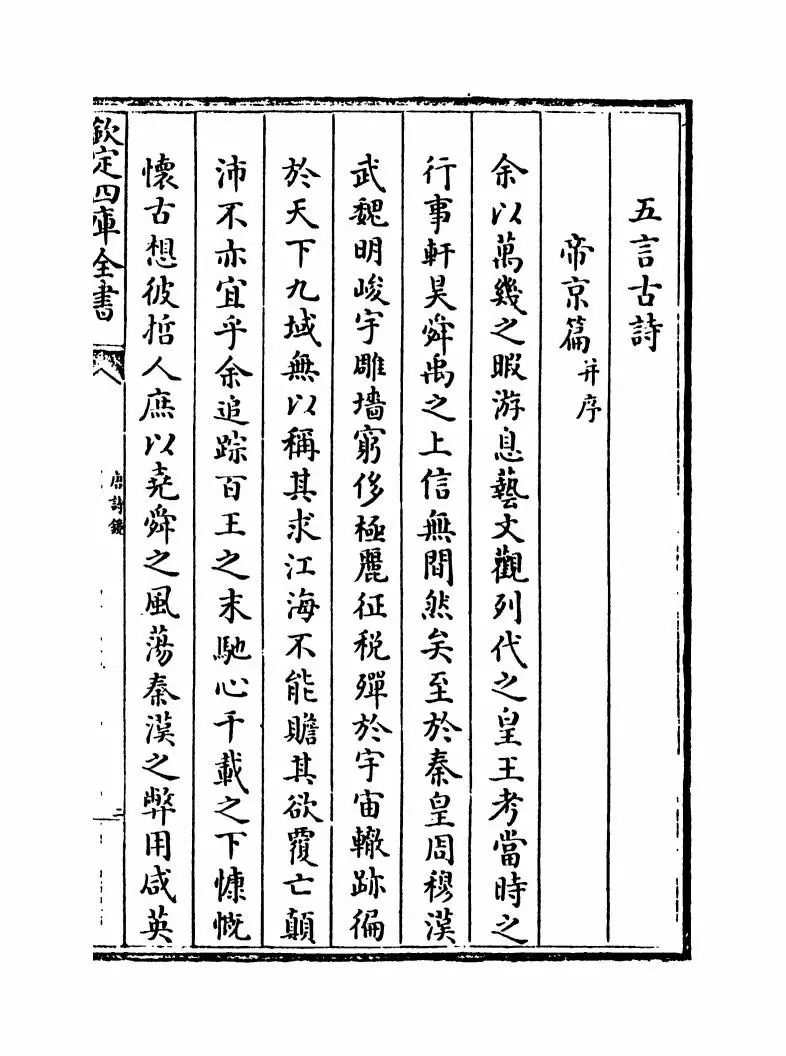 五言古詩
帝京篇并序
余以萬幾之暇游息藝文觀列代之皇王考當時之
行事軒昊舜禹之上信無間然矣至於秦皇周穆漢
武魏明峻宇雕墻窮侈極麗征稅殫於宇宙轍跡徧
於天下九域無以稱其求江海不能贍其欲覆亡顛
沛不亦宜乎余追踪百王之末馳心千載之下慷慨
懷古想彼哲人庶以堯舜之風蕩秦漢之弊用咸英
欽定四庫全書
唐詩鏡
二